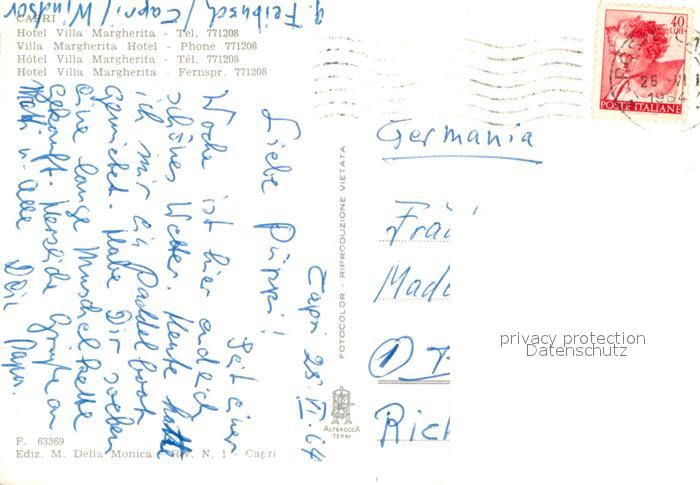 CAPRI
Hotel Villa Margherita - Tel. 771208
Villa Margherita Hotel - Phone 771208
Hôtel Villa Margherita - Tél. 771208
Hotel Villa Margherita - Fernspr. 771208
Capri 25.VI.64
Liebe Püppi!
Seit einer
Woche ist hier endlich
schönes Wetter. Heute hatte
ich mir ein Paddelboot
gemietet. Habe Dir soeben
eine lange Muschelkette
gekauft. Herzliche Grüße an
Mutti u. alle
Dein Papa.
Capri / Windsor
FOTOCOLOR - RIPRODUZIONE VIETATA
ALTEROCCA
TERNI
F. 63369
Ediz. M. Della Monica - R.V. N. 1 - Capri
40
LIRE
POSTE ITALIANE
26 VI
1964
Germania
Frä
Mad
Rich
privacy protection
Datenschutz